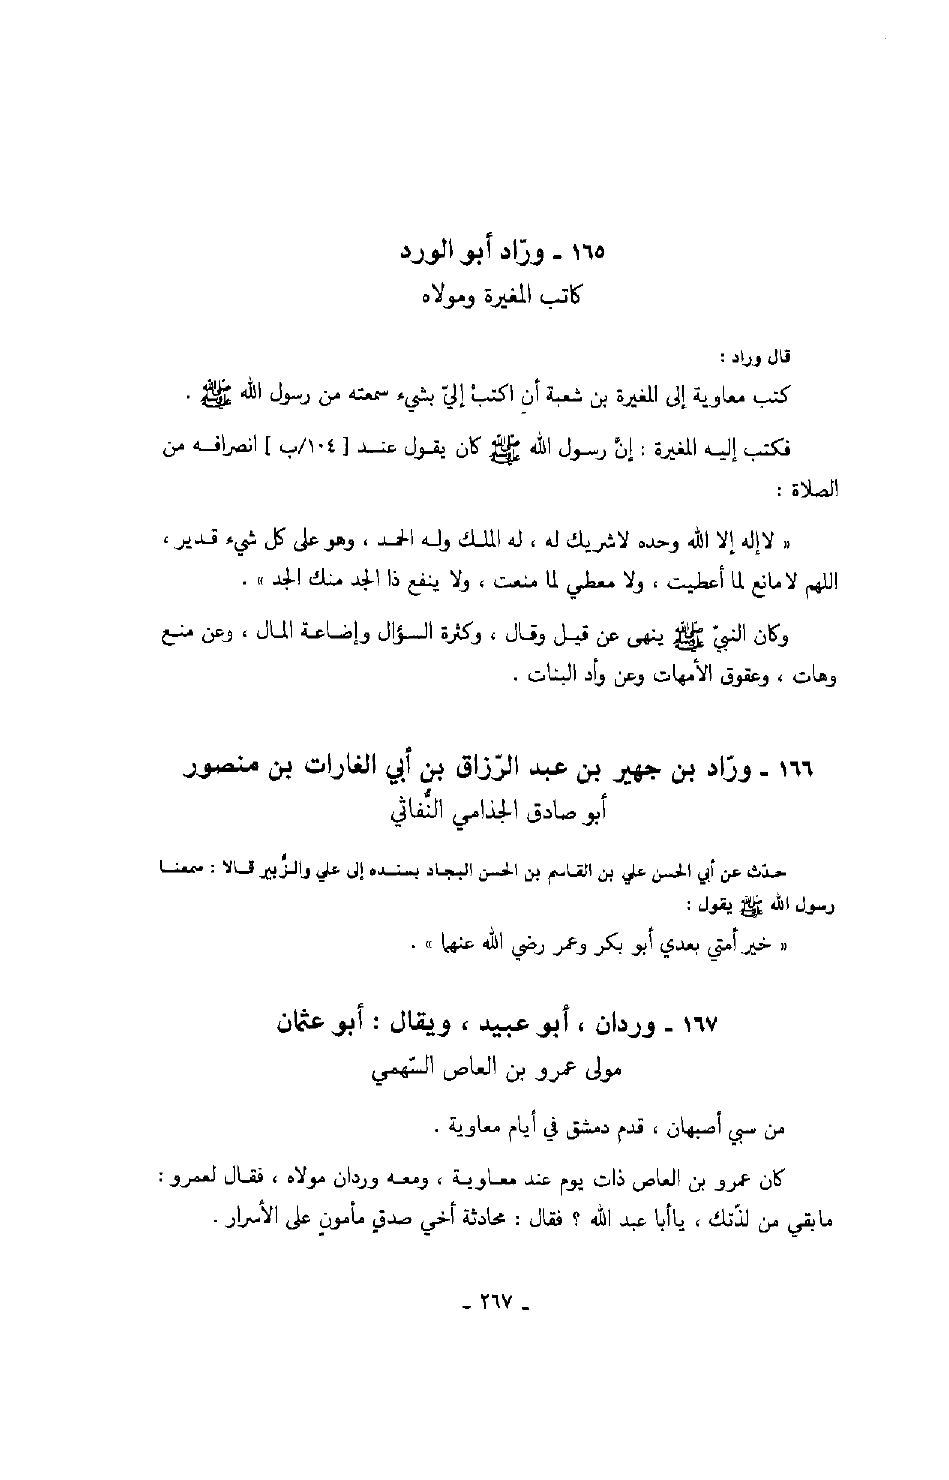 ١٦٥ ـ ورّاد أبو الورد
كاتب المغيرة ومولاه
قال وراد :
كتب معاوية إلى المغيرة بن شعبة أن اكتبْ إليّ بشيء سمعته من رسول الله ﷺ .
فكتب إليه المغيرة : إنّ رسول الله ﷺ كان يقول عند [ ١٠٤/ب ] انصرافه من
الصلاة :
« لاإله إلا الله وحده لاشريك له ، له الملك وله الحمد ، وهو على كل شيء قدير ،
اللهم لامانع لما أعطيت ، ولا معطي لما منعت ، ولا ينفع ذا الجد منك الجد » .
وكان النبيّ ﷺ ينهى عن قيل وقال ، وكثرة السؤال وإضاعة المال ، وعن منع
وهات ، وعقوق الأمهات وعن وأد البنات .
١٦٦ ـ ورّاد بن جهير بن عبد الرّزاق بن أبي الغارات بن منصور
أبو صادق الجذامي النُّفاثي
حدّث عن أبي الحسن علي بن القاسم بن الحسن البجاد بسنده إلى علي والزُّبير قالا : سمعنا
رسول الله ﷺ يقول :
« خير أمتي بعدي أبو بكر وعمر رضي الله عنهما » .
١٦٧ ـ وردان ، أبو عبيد ، ويقال : أبو عثمان
مولى عمرو بن العاص السّهمي
من سبي أصبهان ، قدم دمشق في أيام معاوية .
كان عمرو بن العاص ذات يوم عند معاوية ، ومعه وردان مولاه ، فقال لعمرو :
مابقي من لذّتك ، ياأبا عبد الله ؟ فقال : محادثة أخي صدقٍ مأمونٍ على الأسرار .
ـ ٢٦٧ ـ